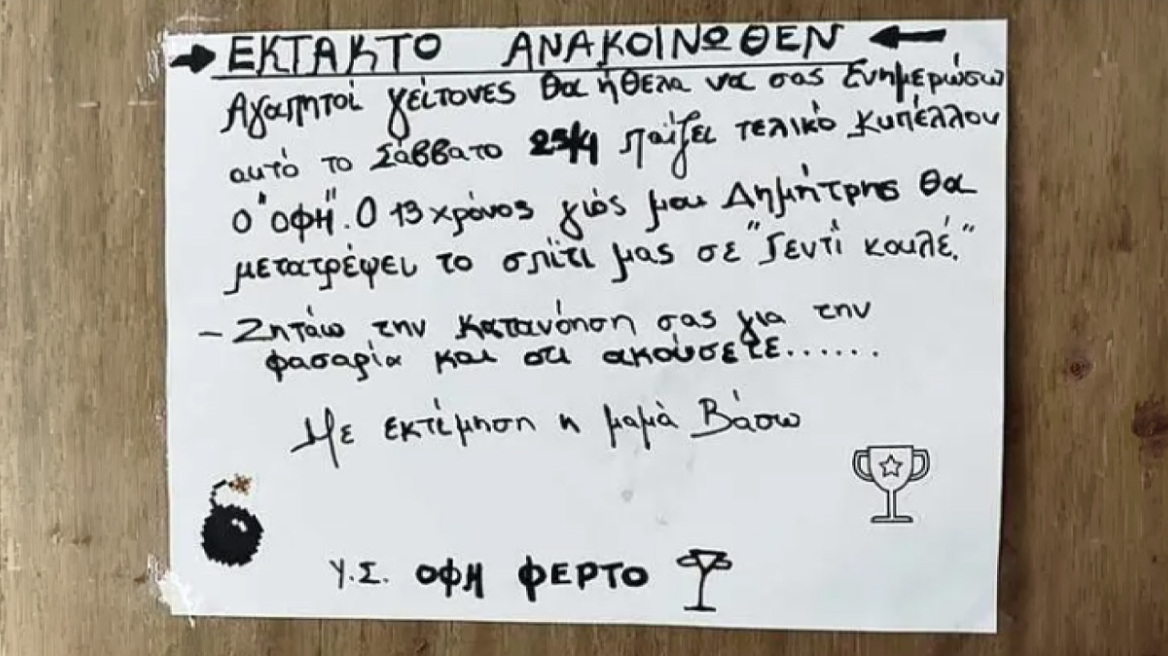 ΕΚΤΑΚΤΟ ΑΝΑΚΟΙΝΩΘΕΝ
Αγαπητοί γείτονες θα ήθελα να σας Ενημερώσω
αυτό το Σάββατο 25/4 παίζει τελικό κυπέλλου
ο "ΟΦΗ". Ο 13χρόνος γιός μου Δημήτρης θα
μετατρέψει το σπίτι μας σε "Γεντί κουλέ."
- Ζητάω την κατανόηση σας για την
φασαρία και ότι ακούσετε......
Με εκτίμηση η μαμά Βάσω
Υ.Σ. ΟΦΗ ΦΕΡΤΟ